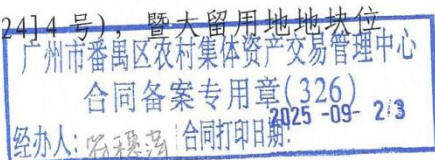 2414号)，暨大留用地地块位
广州市番禺区农村集体资产交易管理中心
合同备案专用章(326)
经办人: 合同打印日期: 2025-09-23